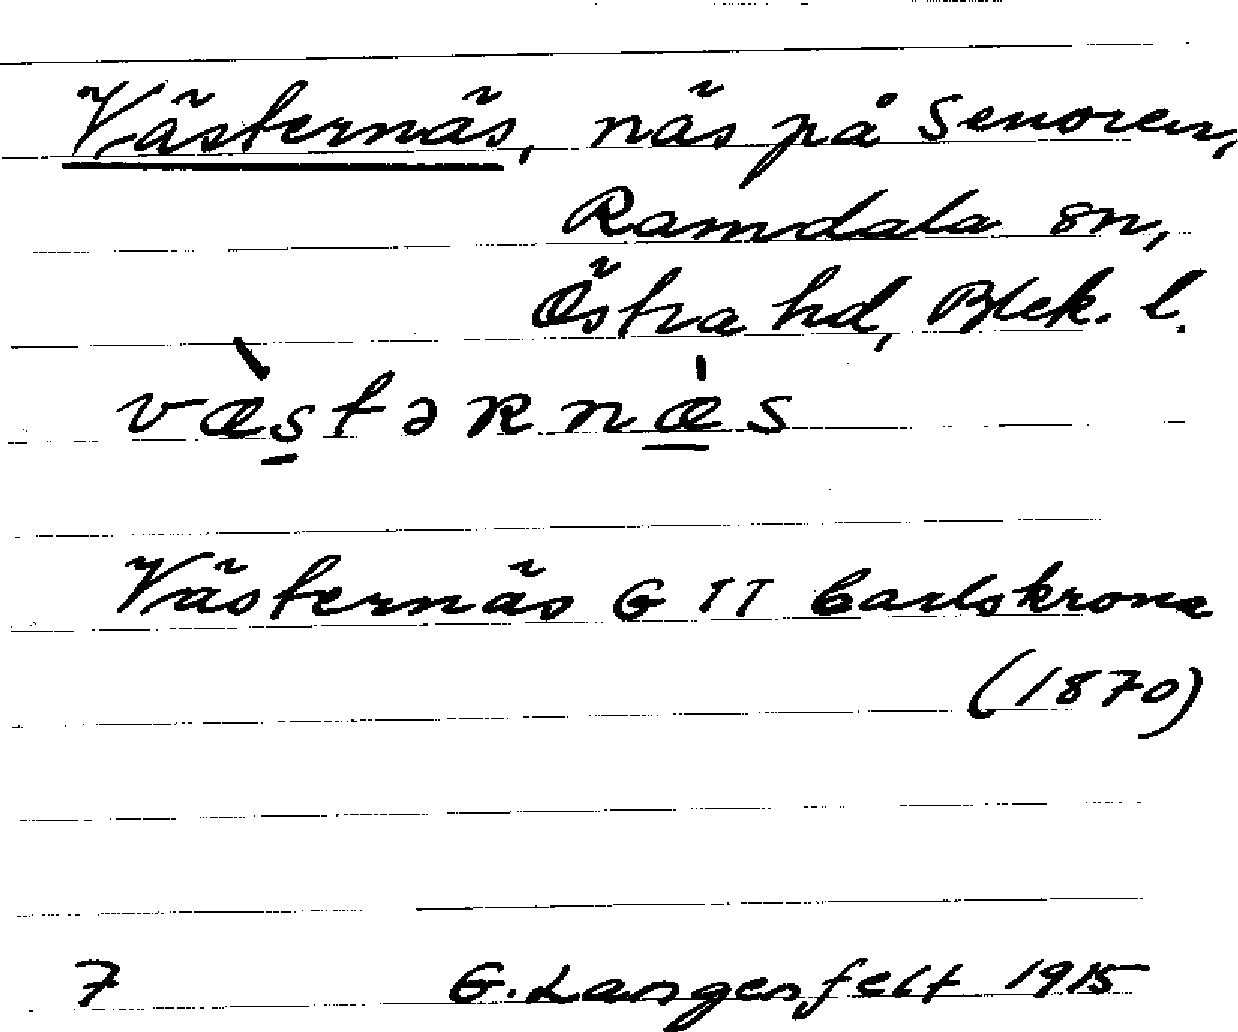 Västernäs, näs på Senoren,
Ramdala sn,
Östra hd, Blek. l.
væ̀stəRnæ̍s
Västernäs G II Carlskrona
(1870)
7 G. Langenfelt 1915